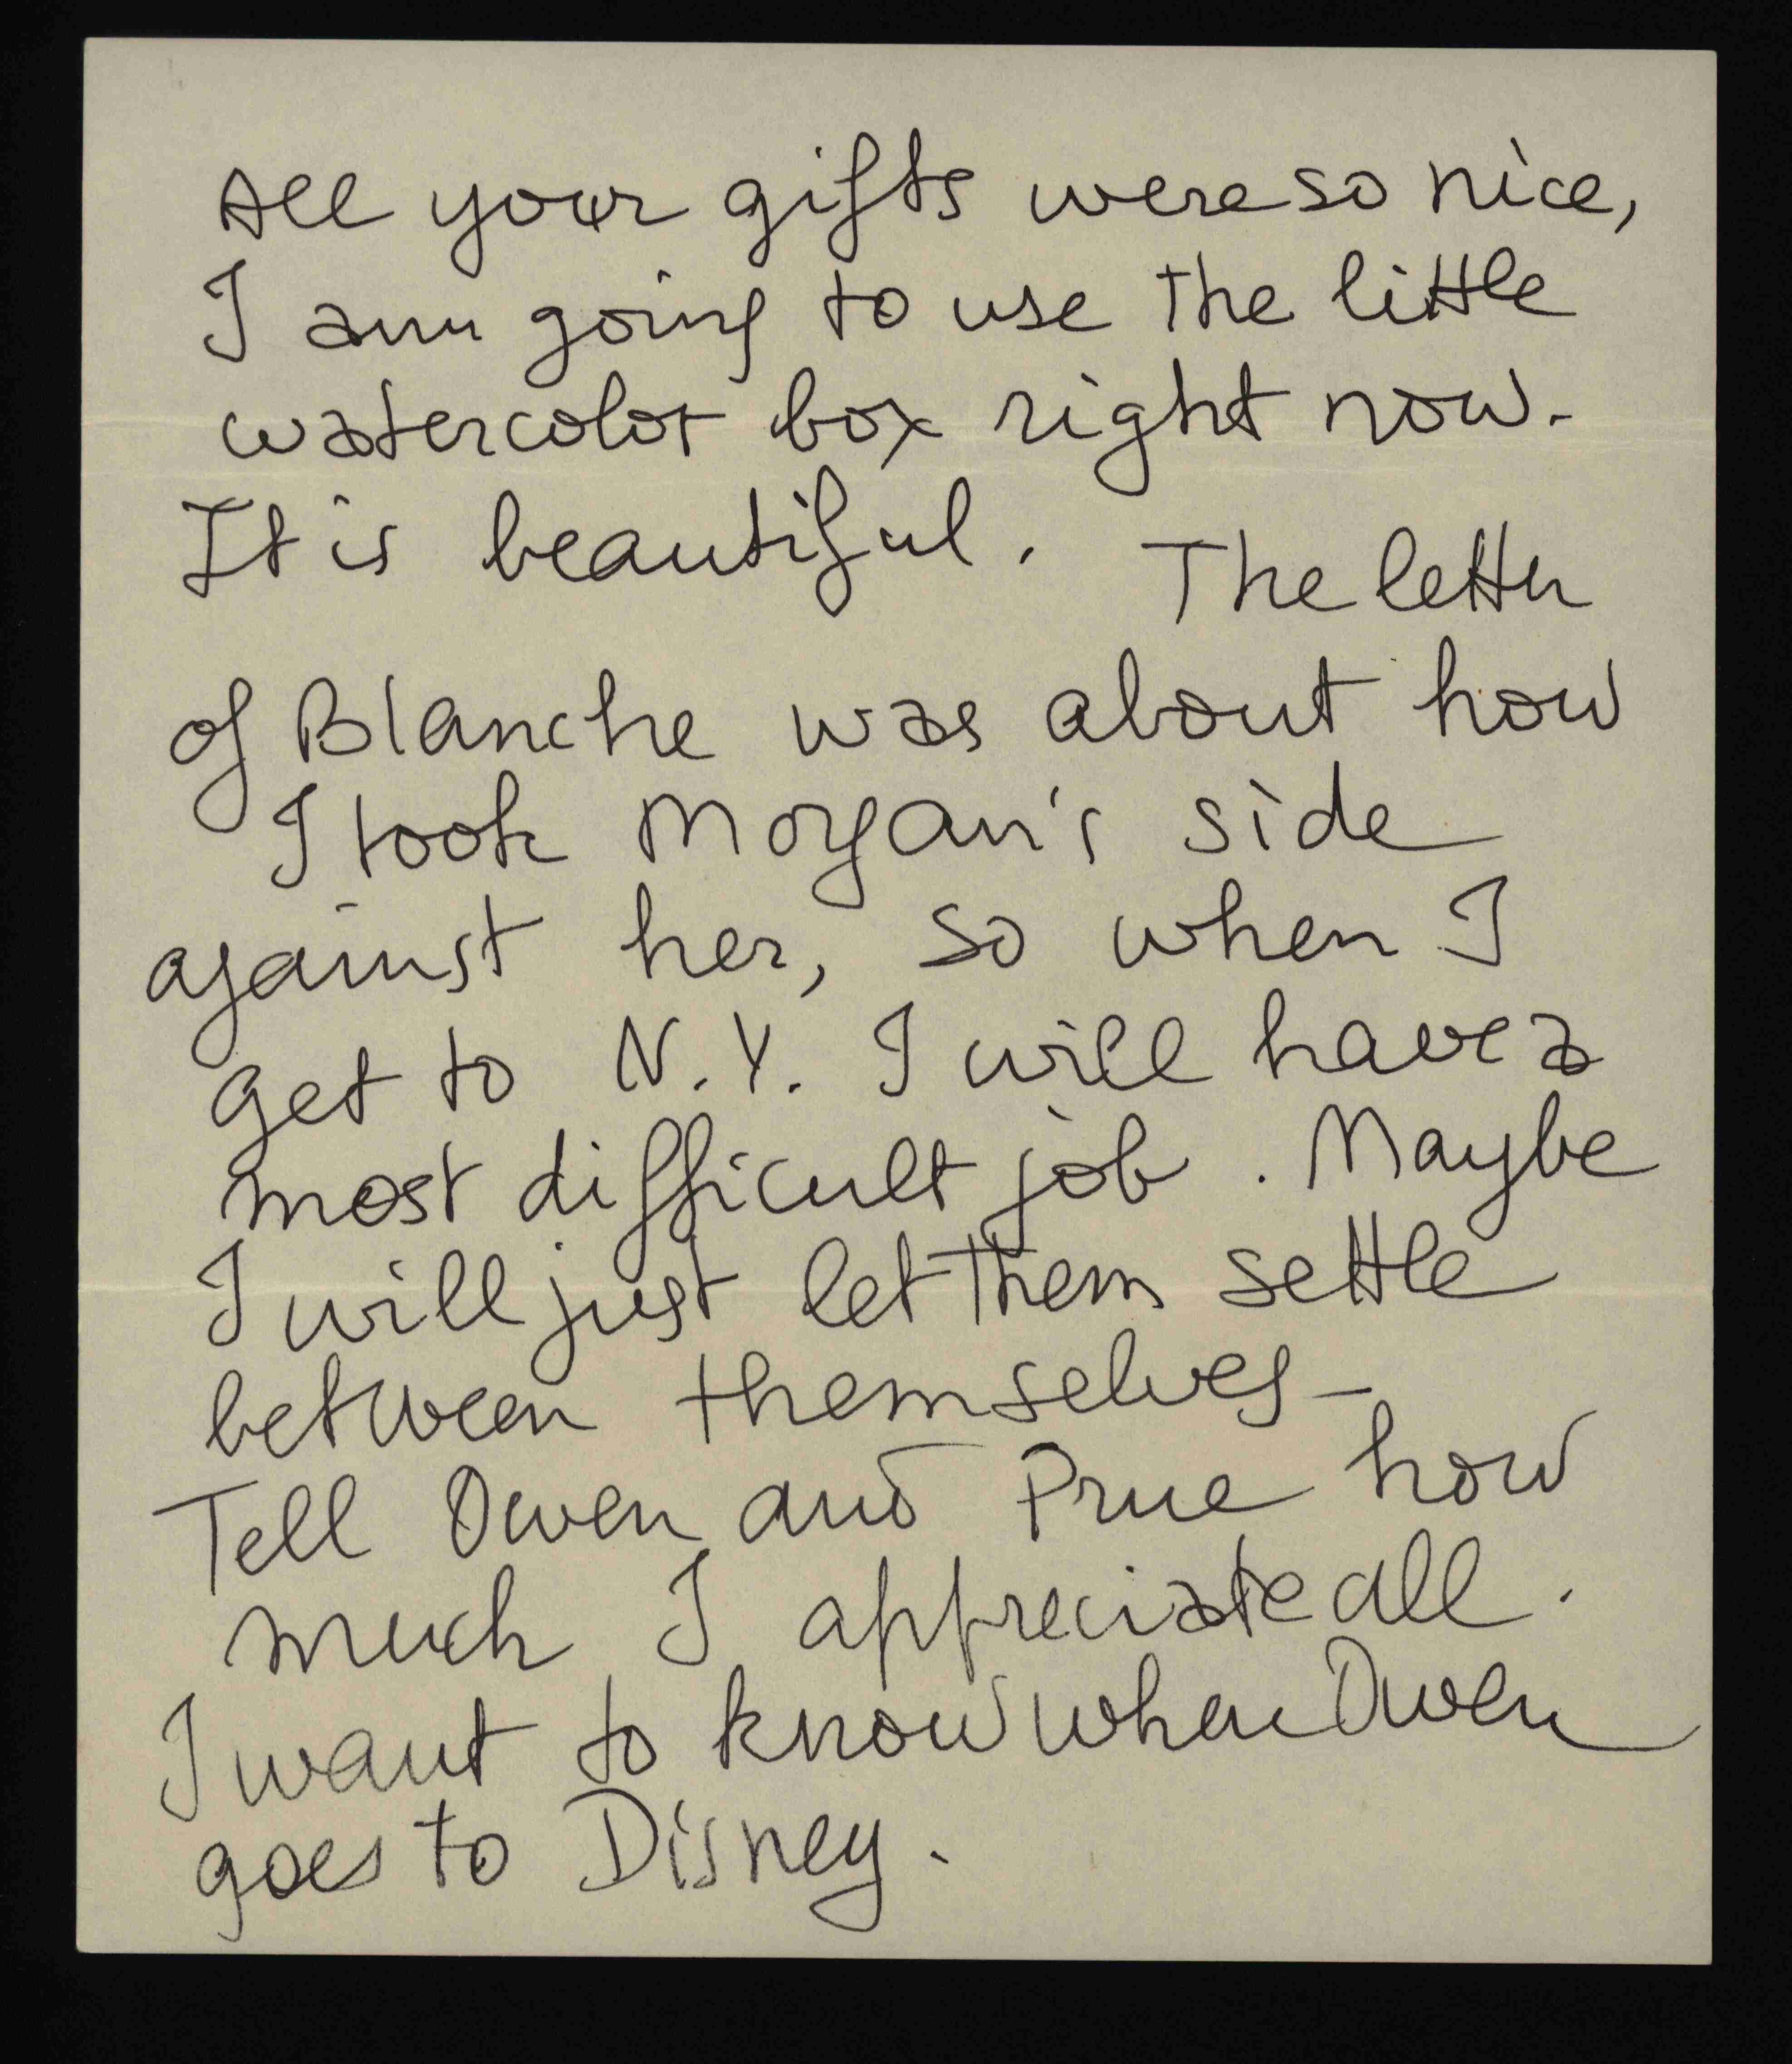 All your gifts were so nice,
I am going to use the little
watercolor box right now.
It is beautiful. The letter
of Blanche was about how
I took Morgan's side
against her, so when I
get to N.Y. I will have a
most difficult job. Maybe
I will just let them settle
between themselves-
Tell Owen and Prue how
much I appreciate all.
I want to know when Owen
goes to Disney.